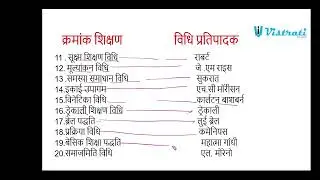 Vistrati
क्रमांक शिक्षण विधि प्रतिपादक
11. सूक्ष्म शिक्षण विधि राबर्ट
12. मूल्यांकन विधि जे.एम राइस
13. समस्या समाधान विधि सुकरात
14. इकाई उपागम एच.सी मॉरीसन
15. विनेटिका विधि कार्लटन वाशबर्न
16. ड्रेकाली शिक्षण विधि ड्रेकाली
17. ब्रेल पद्धति लुई ब्रेल
18. प्रक्रिया विधि कमेनियस
19. बेसिक शिक्षा पद्धति महात्मा गांधी
20. समाजमिति विधि एल. मोरेनो